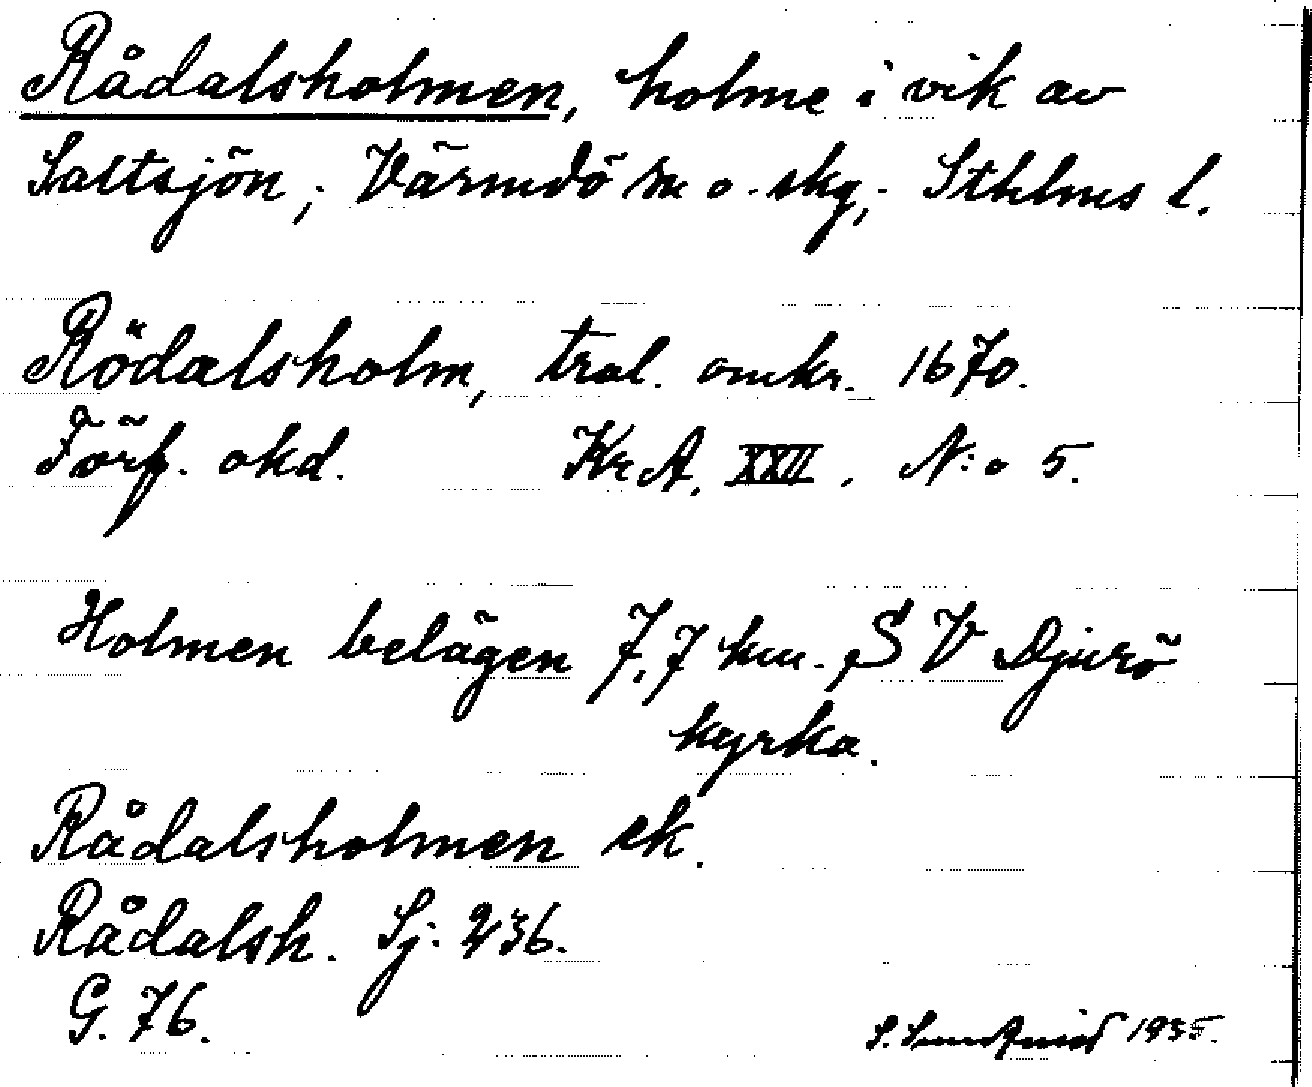 Rådalsholmen, holme i vik av
Saltsjön, Värmdö sn o. skg, Sthlms l.
Rödalsholm, tral. omkr. 1670.
Förf. okd. Kr.A. XXII. N:o 5.
Holmen belägen 7,7 km. SV Djurö
kyrka.
Rådalsholmen ek.
Rådalsh. Sj. 236.
G. 76.
S. 1935.